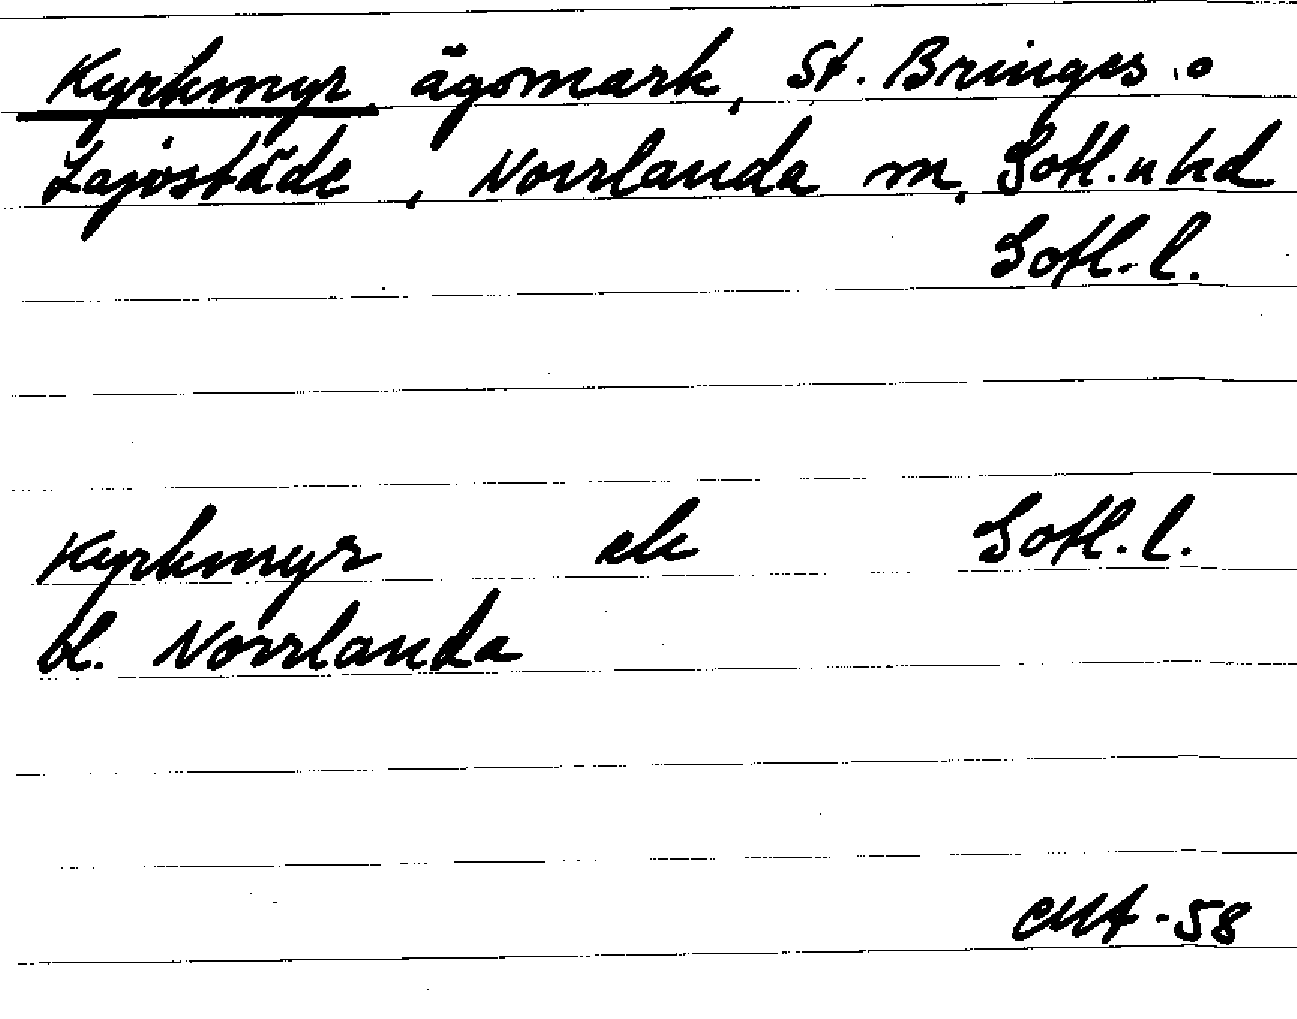 Kyrkmyr, ägomark, St. Bringes o
Lajostäde, Norrlanda sn, Gotl. n hd
Gotl. l.
Kyrkmyr ek Gotl. l.
bl. Norrlanda
-58